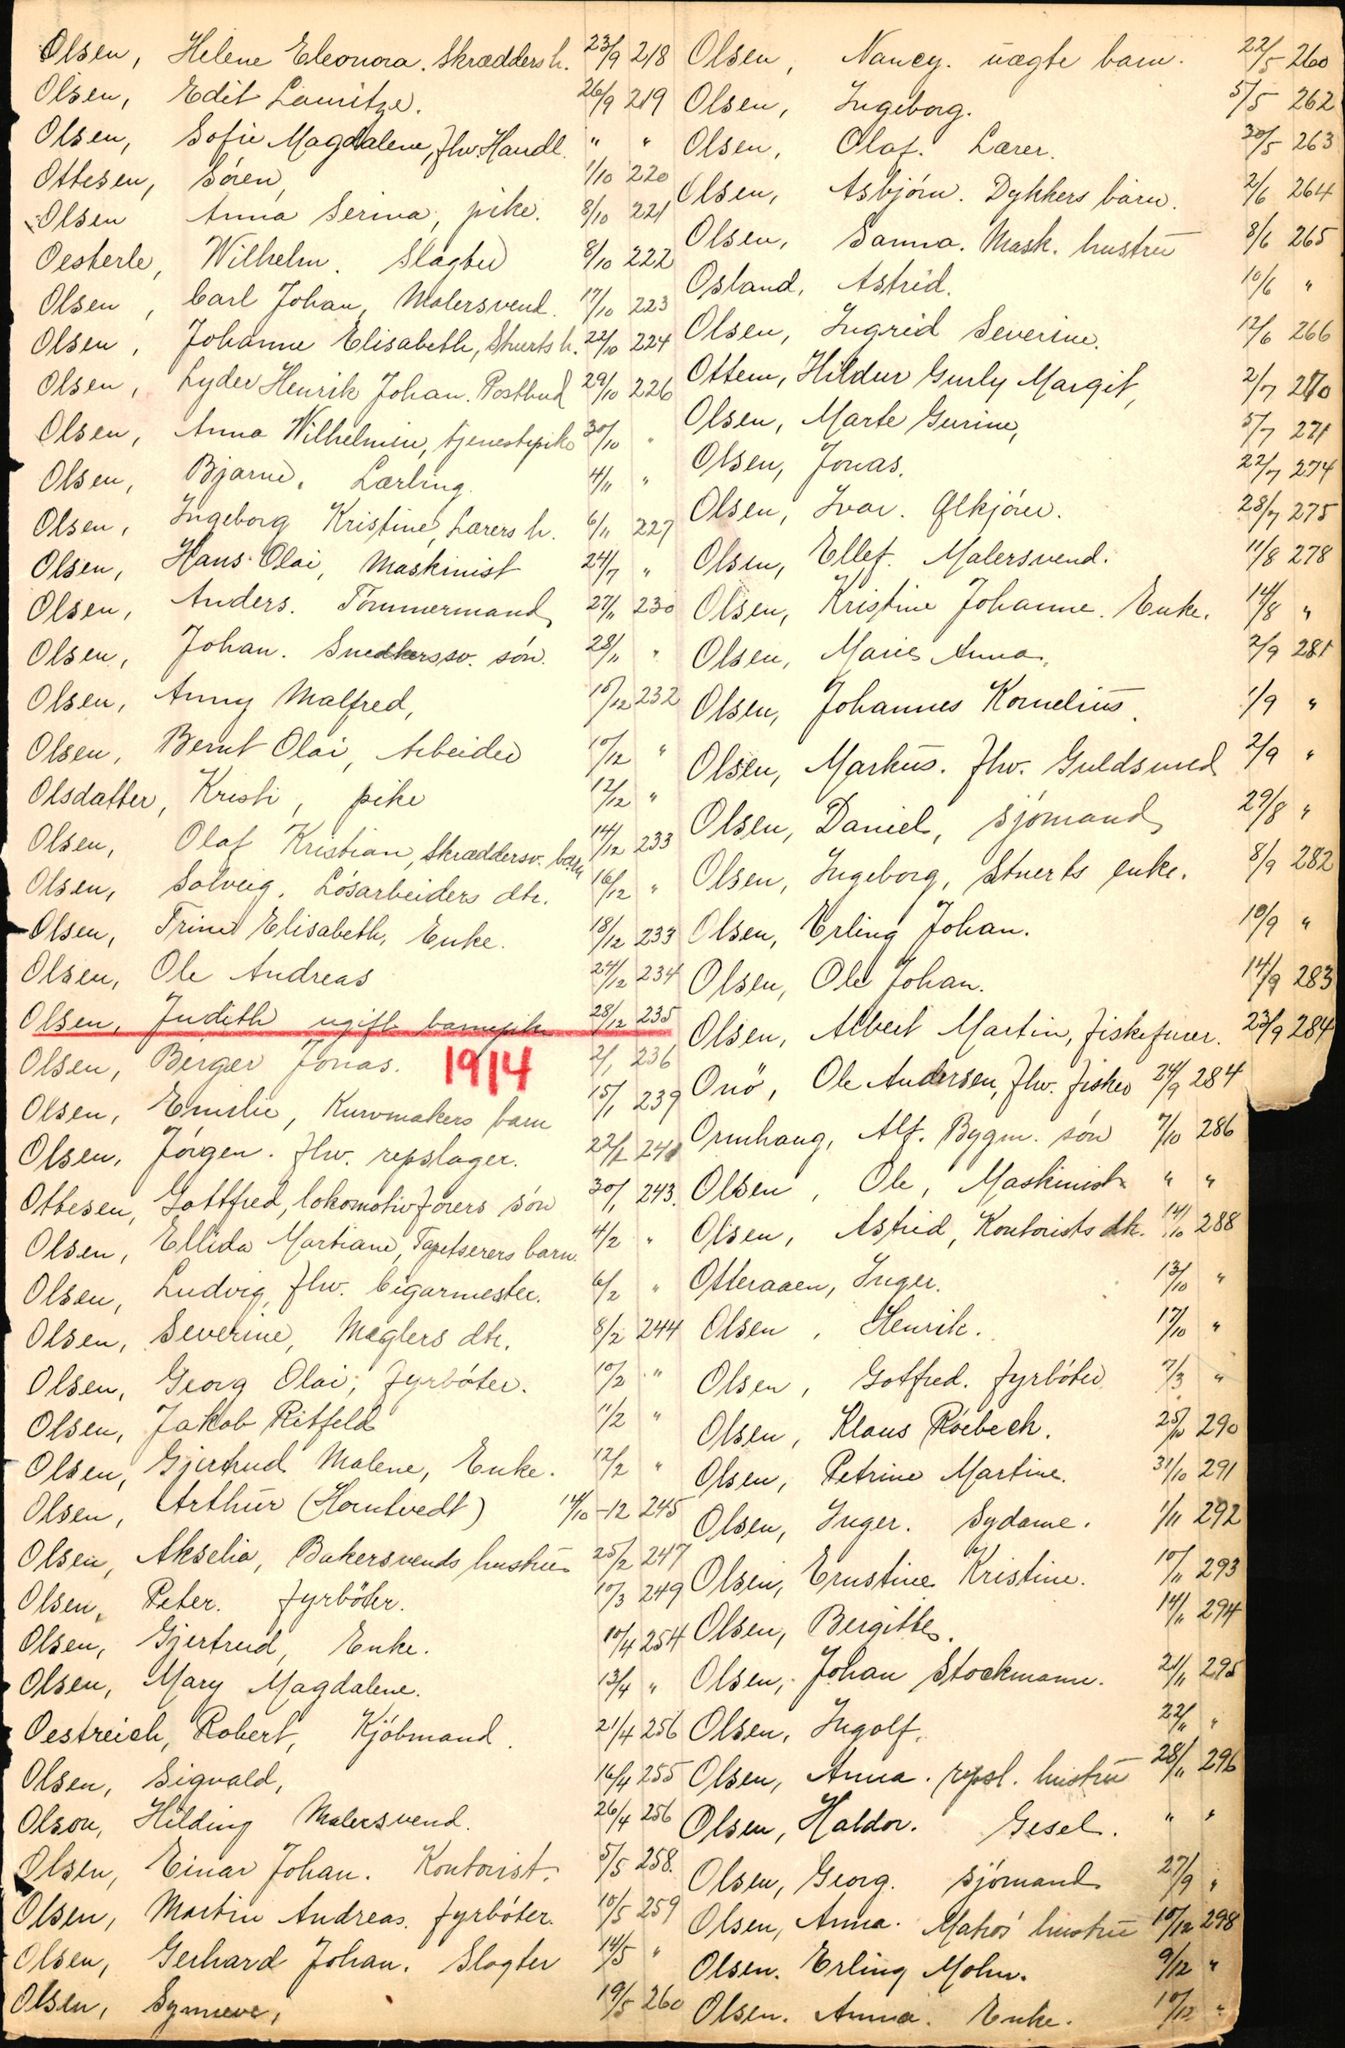 Olsen, Helene Eleonora. Skrædders h. 23/9 218
Olsen, Edit Lauritze. 26/9 219
Olsen, Sofie Magdalene, fhv. Handl. " "
Ottesen, Sören, 1/10 220
Olsen Anna Serina, pike. 8/10 221
Oesterle, Wilhelm. Slagter 8/10 222
Olsen, Carl Johan, Malersvend. 17/10 223
Olsen, Johanne Elisabeth, Stuerts h. 22/10 224
Olsen, Lyder Henrik Johan. Postbud 29/10 226
Olsen, Anna Wilhelmin, tjenestepike 30/10 "
Olsen, Bjarne. Lærling 4/11 "
Olsen, Ingeborg Kristine, Lærers h. 6/11 227
Olsen, Hans Olai, Maskinist 24/7 "
Olsen, Anders. Tömmermand 27/11 230
Olsen, Johan. Snedkersv. sön. 28/11 "
Olsen, Anny Malfred, 10/12 232
Olsen, Bernt Olai, Arbeider 10/12 "
Olsdatter, Kristi, pike 12/12 "
Olsen, Olaf Kristian, Skræddersv. barn 14/12 233
Olsen, Solveig. Lösarbeiders dtr. 16/12 "
Olsen, Trine Elisabeth, Enke. 18/12 233
Olsen, Ole Andreas 24/12 234
Olsen, Judith ugift barnepike 28/12 235
1914
Olsen, Birger Jonas. 2/1 236
Olsen, Emilie, Kurvmakers barn 15/1 239
Olsen, Jörgen. fhv. repslager. 22/1 241
Ottesen, Gottfred, lokomotivförers sön 30/1 243.
Olsen, Ellida Martiane, Tapetserers barn. 4/2 "
Olsen, Ludvig, fhv. Cigarmester. 6/2 "
Olsen, Severine, Mæglers dtr. 8/2 244
Olsen, Georg Olai, fyrböter. 10/2 "
Olsen, Jakob Ritfeld 11/2 "
Olsen, Gjertrud Malene, Enke. 12/2 "
Olsen, Arthur (Horntvedt) 14/10-12 245
Olsen, Akselia, Bakersvends hustru 25/2 247
Olsen, Peter. fyrböter. 10/3 249
Olsen, Gjertrud, Enke. 10/4 254
Olsen, Mary Magdalene. 13/4 "
Oestreich, Robert, Kjöbmand. 21/4 256
Olsen, Sigvald, 16/4 255
Olson, Hilding Malersvend. 26/4 256
Olsen, Einar Johan. Kontorist. 5/5 258.
Olsen, Martin Andreas. fyrböter. 10/5 259
Olsen, Gerhard Johan. Slagter 14/5 "
Olsen, Synneve, 19/5 260
Olsen, Nancy. uægte barn. 22/5 260
Olsen, Ingeborg. 5/5 262
Olsen, Olaf. Lærer. 30/5 263
Olsen, Asbjörn. Dykkers barn. 2/6 264
Olsen, Sanna. Mask. hustru 8/6 265
Osland, Astrid. 10/6 "
Olsen, Ingrid Severine. 12/6 266
Ottem, Hildur Gurly Margit, 2/7 270
Olsen, Marte Gurine, 5/7 271
Olsen, Jonas. 22/7 274
Olsen, Ivar. Ölkjörer. 28/7 275
Olsen, Ellef. Malersvend. 11/8 278
Olsen, Kristine Johanne. Enke. 14/8 "
Olsen, Marie Anna, 2/9 281
Olsen, Johannes Kornelius. 1/9 "
Olsen, Markus. fhv. Guldsmed 2/9 "
Olsen, Daniel, sjömand 29/8 "
Olsen, Ingeborg, Stuerts enke. 8/9 282
Olsen, Erling Johan. 10/9 "
Olsen, Ole Johan. 14/9 283
Olsen, Albert Martin, fiskefører. 23/9 284
Onö, Ole Andersen, fhv. fisker 24/9 284
Ormhaug, Alf. Bygm. sön 7/10 286
Olsen, Ole, Maskinist " "
Olsen, Astrid, Kontorists dtr. 14/10 288
Otteraaen, Inger. 13/10 "
Olsen, Henrik. 17/10 "
Olsen, Gotfred. fyrböter 7/3 "
Olsen, Klaus Röebech. 25/10 290
Olsen, Petrine Martine. 31/10 291
Olsen, Inger. Sydame. 1/11 292
Olsen, Ernstine Kristine. 10/11 293
Olsen, Bergitte. 14/11 294
Olsen, Johan Stockmann. 21/11 295
Olsen, Ingolf. 22/11 "
Olsen, Anna. repsl. hustru 28/11 296
Olsen, Haldor. Gesel. " "
Olsen, Georg. sjömand 27/9 "
Olsen, Anna. Matros' hustru 10/12 298
Olsen. Erling Mohn. 9/12 "
Olsen. Anna. Enke. 10/12 "